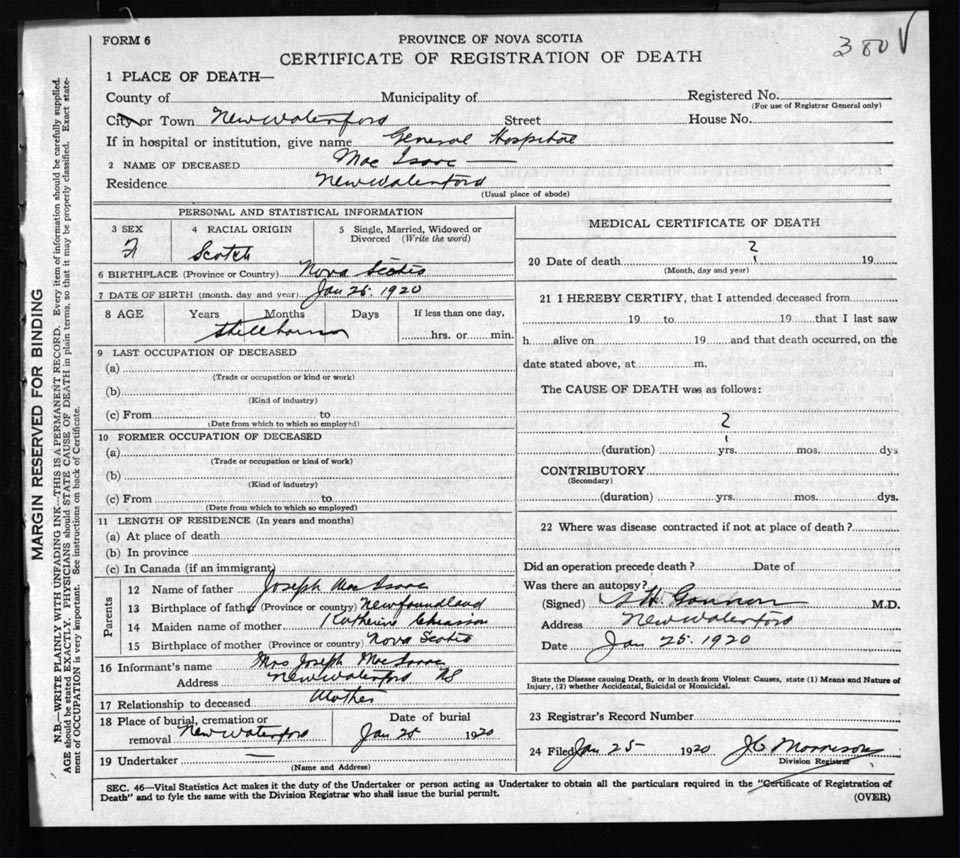 380 ✓
FORM 6
PROVINCE OF NOVA SCOTIA
CERTIFICATE OF REGISTRATION OF DEATH
1 PLACE OF DEATH—
County of Municipality of Registered No.
(For use of Registrar General only)
City or Town New Waterford Street House No.
If in hospital or institution, give name General Hospital
2 NAME OF DECEASED Mac Isaac —
Residence New Waterford
(Usual place of abode)
PERSONAL AND STATISTICAL INFORMATION
3 SEX 4 RACIAL ORIGIN 5 Single, Married, Widowed or Divorced (Write the word)
F Scotch
6 BIRTHPLACE (Province or Country) Nova Scotia
7 DATE OF BIRTH (month, day and year) Jan 25. 1920
8 AGE Years Months Days If less than one day,
Stillborn hrs. or min.
9 LAST OCCUPATION OF DECEASED
(a)
(Trade or occupation or kind or work)
(b)
(Kind of industry)
(c) From to
(Date from which to which so employed)
10 FORMER OCCUPATION OF DECEASED
(a)
(Trade or occupation or kind of work)
(b)
(Kind of industry)
(c) From to
(Date from which to which so employed)
11 LENGTH OF RESIDENCE (In years and months)
(a) At place of death
(b) In province
(c) In Canada (if an immigrant)
Parents
12 Name of father Joseph Mac Isaac
13 Birthplace of father (Province or country) Newfoundland
14 Maiden name of mother Katherine Chiasson
15 Birthplace of mother (Province or country) Nova Scotia
16 Informant's name Mrs Joseph MacIsaac
Address New Waterford NS
17 Relationship to deceased Mother
18 Place of burial, cremation or Date of burial
removal New Waterford Jan 25 1920
19 Undertaker —
(Name and Address)
MEDICAL CERTIFICATE OF DEATH
20 Date of death ? 19
(Month, day and year)
21 I HEREBY CERTIFY, that I attended deceased from
19 to 19 that I last saw
h alive on 19 and that death occurred, on the
date stated above, at m.
The CAUSE OF DEATH was as follows:
?
(duration) yrs. mos. dys
CONTRIBUTORY
(Secondary)
(duration) yrs. mos. dys.
22 Where was disease contracted if not at place of death?
Did an operation precede death? Date of
Was there an autopsy?
(Signed) M.D.
Address New Waterford
Date Jan 25. 1920
State the Disease causing Death, or in death from Violent Causes, state (1) Means and Nature of
Injury, (2) whether Accidental, Suicidal or Homicidal.
23 Registrar's Record Number
24 Filed Jan 25 1920 JC Morrison
Division Registrar
SEC. 46—Vital Statistics Act makes it the duty of the Undertaker or person acting as Undertaker to obtain all the particulars required in the "Certificate of Registration of
Death" and to fyle the same with the Division Registrar who shall issue the burial permit. (OVER)
MARGIN RESERVED FOR BINDING
N.B.—WRITE PLAINLY WITH UNFADING INK—THIS IS A PERMANENT RECORD. Every item of information should be carefully supplied.
AGE should be stated EXACTLY. PHYSICIANS should STATE CAUSE OF DEATH in plain terms, so that it may be properly classified. Exact state-
ment of OCCUPATION is very important. See instructions on back of Certificate.